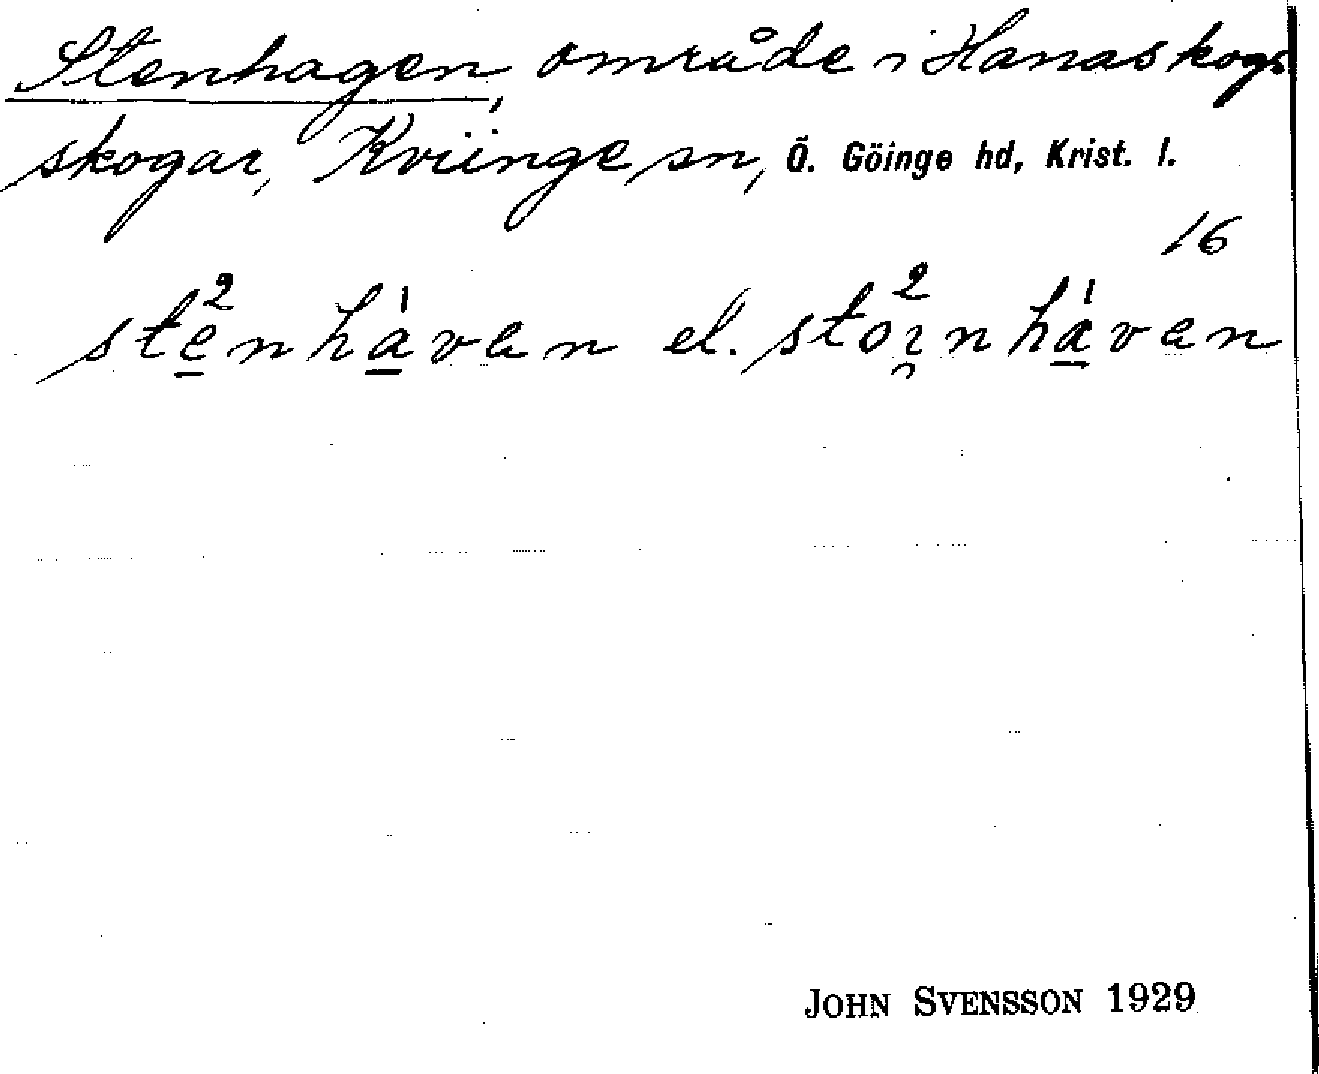 Stenhagen, område i Hanaskogs
skogar, Kviinge sn, Ö. Göinge hd, Krist. l.
16
stè̱²nhá̱van el. stoɪ̯²nhá̱van
JOHN SVENSSON 1929